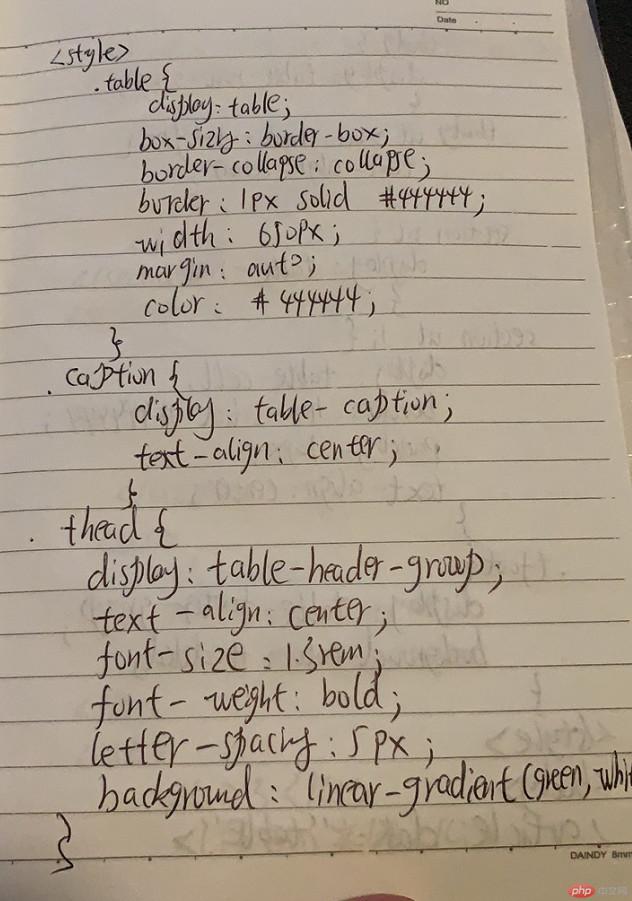 NO
Date
<style>
.table {
display: table;
box-sizing: border-box;
border-collapse: collapse;
border: 1px solid #444444;
width: 650px;
margin: auto;
color: #444444;
}
.caption {
display: table-caption;
text-align: center;
}
.thead {
display: table-header-group;
text-align: center;
font-size: 1.3rem;
font-weight: bold;
letter-spacing: 5px;
background: linear-gradient(green, whi
}
DAINDY 8mm
php 中文网